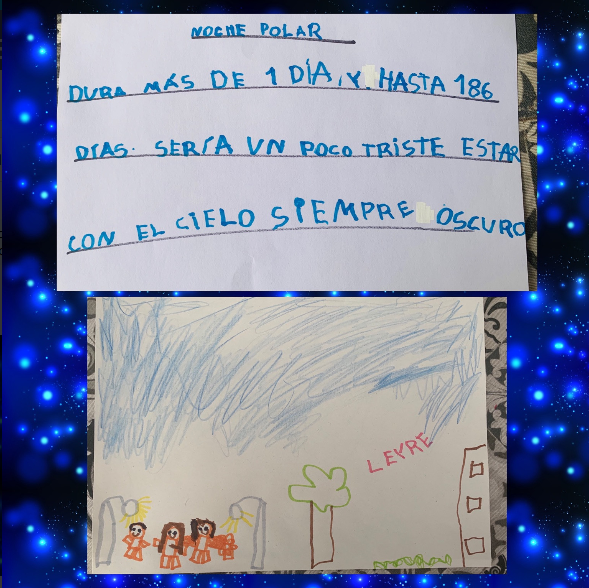 NOCHE POLAR
DURA MÁS DE 1 DÍA, Y HASTA 186
DÍAS. SERÍA UN POCO TRISTE ESTAR
CON EL CIELO SIEMPRE OSCURO
LEYRE